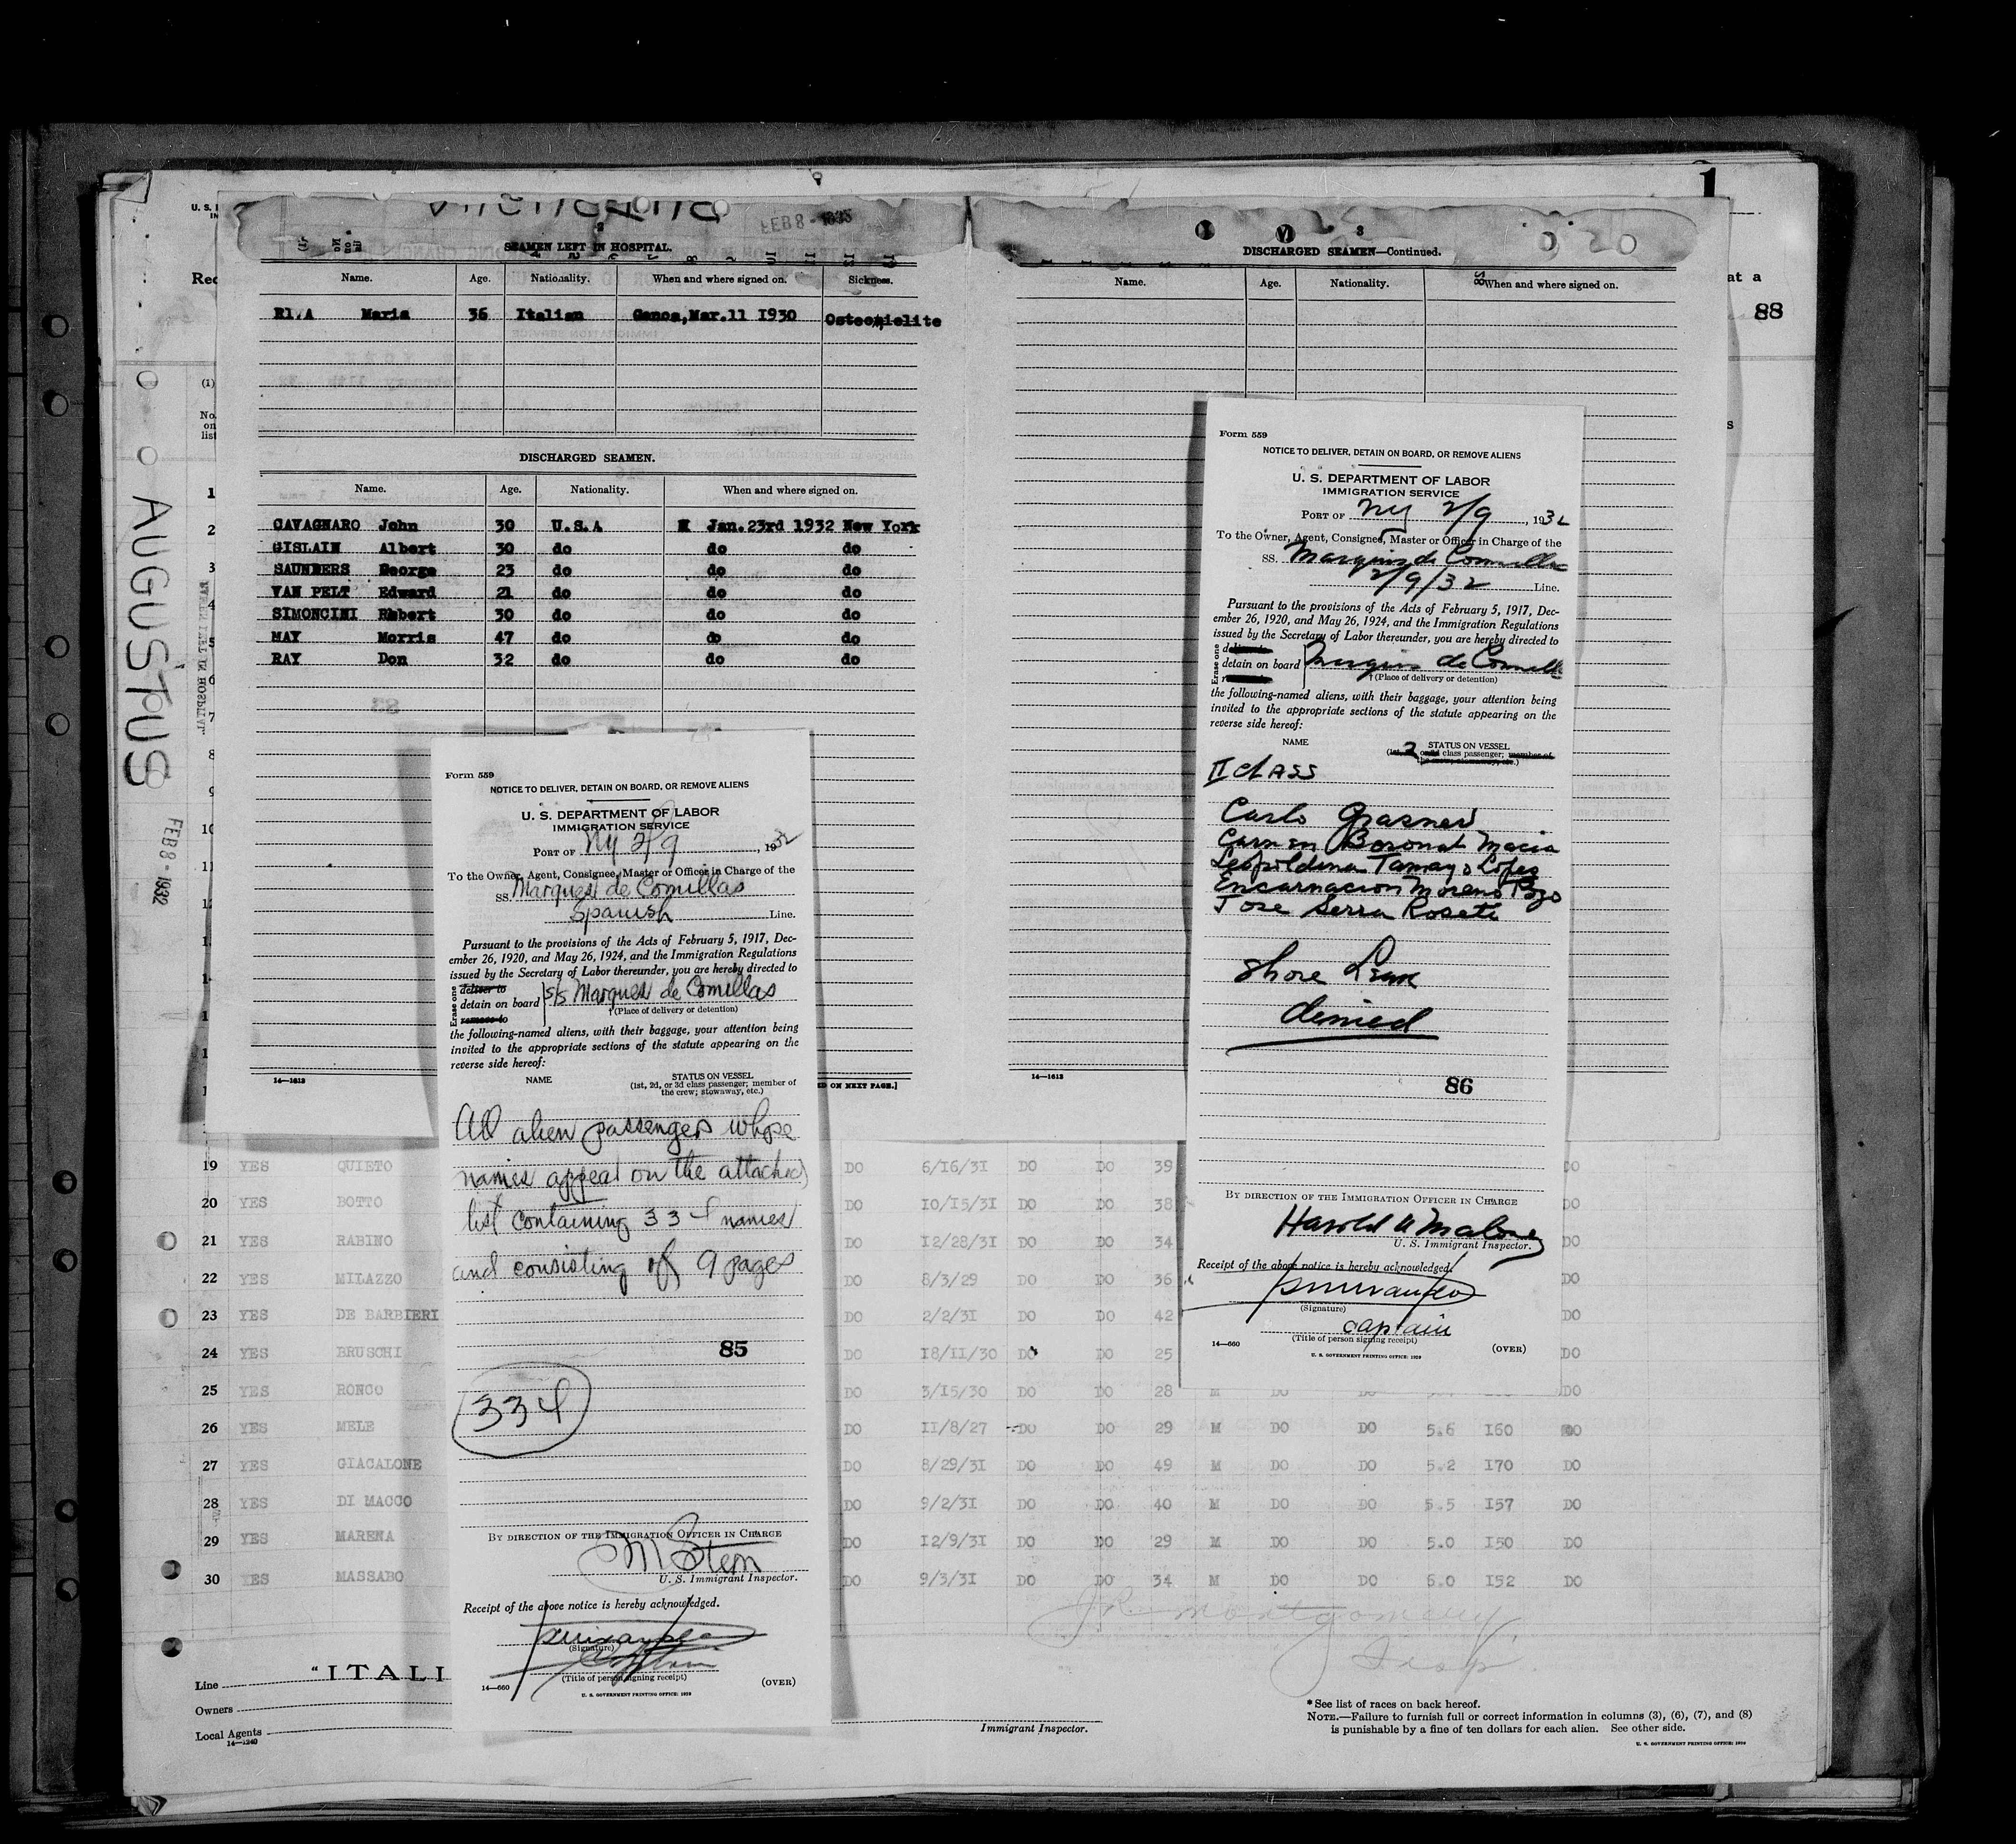 1
U. S.
FEB 8 - 1933
2
SEAMEN LEFT IN HOSPITAL.
Name. Age. Nationality. When and where signed on. Sickness.
Maria 36 Italian Genoa, Mar. 11 1930
DISCHARGED SEAMEN.
Name. Age. Nationality. When and where signed on.
CAVAGNARO John 30 U.S.A Jan. 23rd 1932 New York
GISLAIN Albert 30 do do do
SAUNDERS George 23 do do do
VAN PELT Edward 21 do do do
SIMONCINI Robert 30 do do do
MAY Morris 47 do do do
RAY Don 32 do do do
14—1613
ON NEXT PAGE.]
3
DISCHARGED SEAMEN—Continued.
Name. Age. Nationality. When and where signed on.
14—1613
at a
88
(1)
No.
on
list
AUGUSTUS
FEB 8 - 1932
1
2
3
4
5
6
7
8
Form 559
NOTICE TO DELIVER, DETAIN ON BOARD, OR REMOVE ALIENS
U. S. DEPARTMENT OF LABOR
IMMIGRATION SERVICE
PORT OF NY 2/9, 1932
To the Owner, Agent, Consignee, Master or Officer in Charge of the
SS. Marques de Comillas
Spanish Line.
Pursuant to the provisions of the Acts of February 5, 1917, Dec-
ember 26, 1920, and May 26, 1924, and the Immigration Regulations
issued by the Secretary of Labor thereunder, you are hereby directed to
Erase one
deliver to
detain on board S/S Marques de Comillas
remove to
† (Place of delivery or detention)
the following-named aliens, with their baggage, your attention being
invited to the appropriate sections of the statute appearing on the
reverse side hereof:
NAME STATUS ON VESSEL
(1st, 2d, or 3d class passenger; member of
the crew; stowaway, etc.)
All alien passengers whose
names appear on the attached
list containing 334 names
and consisting of 9 pages
85
334
BY DIRECTION OF THE IMMIGRATION OFFICER IN CHARGE
M Stern
U. S. Immigrant Inspector.
Receipt of the above notice is hereby acknowledged.
(Signature)
Captain
(Title of person signing receipt)
14—660 (OVER)
U. S. GOVERNMENT PRINTING OFFICE: 1929
Form 559
NOTICE TO DELIVER, DETAIN ON BOARD, OR REMOVE ALIENS
U. S. DEPARTMENT OF LABOR
IMMIGRATION SERVICE
PORT OF NY 2/9, 1932
To the Owner, Agent, Consignee, Master or Officer in Charge of the
SS. Marquis de Comillas
2/9/32 Line.
Pursuant to the provisions of the Acts of February 5, 1917, Dec-
ember 26, 1920, and May 26, 1924, and the Immigration Regulations
issued by the Secretary of Labor thereunder, you are hereby directed to
Erase one
detain on board de Comillas
† (Place of delivery or detention)
the following-named aliens, with their baggage, your attention being
invited to the appropriate sections of the statute appearing on the
reverse side hereof:
NAME STATUS ON VESSEL
(1st, 2 or 3d class passenger; member of
the crew; stowaway, etc.)
II CLASS
Carlo Grasner
Carmen Boronat Macia
Leopoldina Tamayo Lopes
Encarnacion Moreno Pozo
Jose Serra Rosete
Shore Leave
denied
86
BY DIRECTION OF THE IMMIGRATION OFFICER IN CHARGE
Harold Malone
U. S. Immigrant Inspector.
Receipt of the above notice is hereby acknowledged.
(Signature)
captain
(Title of person signing receipt)
14—660 (OVER)
U. S. GOVERNMENT PRINTING OFFICE: 1929
19 YES QUIETO DO 6/16/31 DO DO 39 DO
20 YES BOTTO DO 10/15/31 DO DO 38 DO
21 YES RABINO DO 12/28/31 DO DO 34 DO
22 YES MILAZZO DO 8/3/29 DO DO 36 DO
23 YES DE BARBIERI DO 2/2/31 DO DO 42 DO
24 YES BRUSCHI DO 18/11/30 DO DO 25 DO
25 YES RONCO DO 3/15/30 DO DO 28 M DO
26 YES MELE DO 11/8/27 DO DO 29 M DO DO 5.6 160 DO
27 YES GIACALONE DO 8/29/31 DO DO 49 M DO DO 5.2 170 DO
28 YES DI MACCO DO 9/2/31 DO DO 40 M DO DO 5.5 157 DO
29 YES MARENA DO 12/9/31 DO DO 29 M DO DO 5.0 150 DO
30 YES MASSABO DO 9/3/31 DO DO 34 M DO DO 6.0 152 DO
Montgomery
Insp.
Line "ITALI
Owners
Local Agents
14—1240
Immigrant Inspector.
* See list of races on back hereof.
NOTE.—Failure to furnish full or correct information in columns (3), (6), (7), and (8)
is punishable by a fine of ten dollars for each alien. See other side.
U. S. GOVERNMENT PRINTING OFFICE: 1929